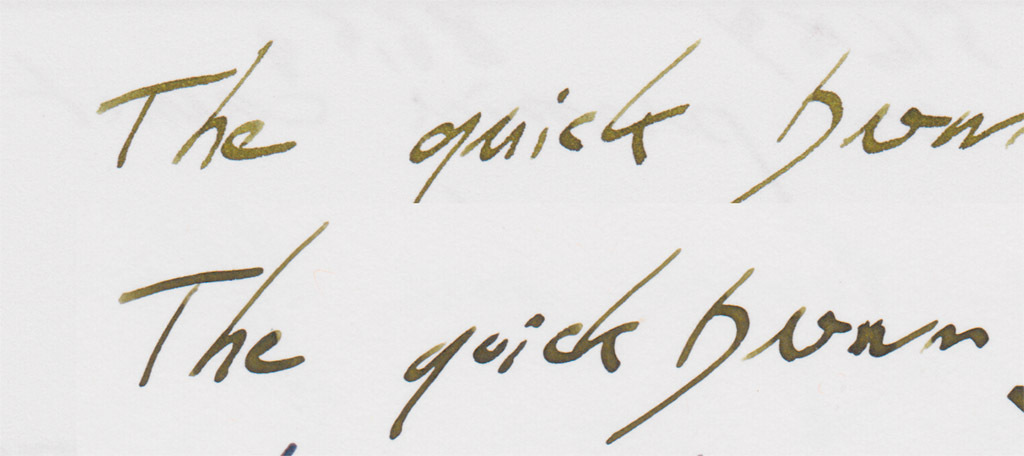 The quick brown
The quick brown